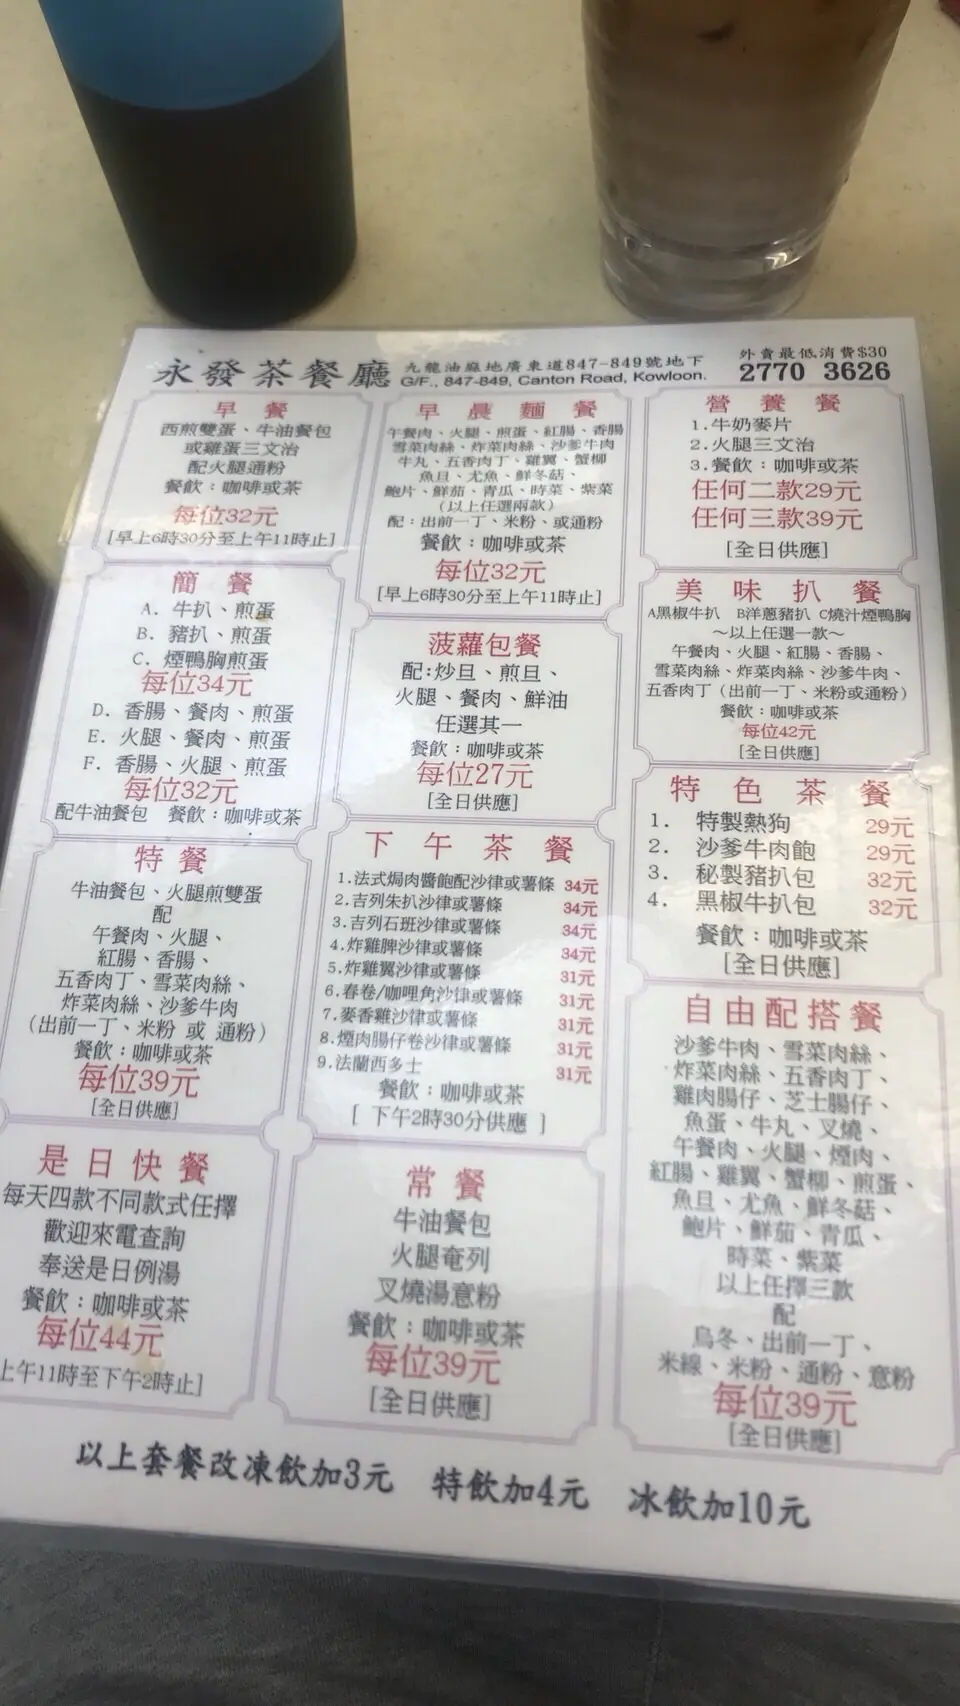 永發茶餐廳
九龍油麻地廣東道847-849號地下
G/F., 847-849, Canton Road, Kowloon.
外賣最低消費$30
2770 3626
早餐
西煎雙蛋、牛油餐包
或雞蛋三文治
配火腿通粉
餐飲：咖啡或茶
每位32元
[早上6時30分至上午11時止]
簡餐
A. 牛扒、煎蛋
B. 豬扒、煎蛋
C. 煙鴨胸煎蛋
每位34元
D. 香腸、餐肉、煎蛋
E. 火腿、餐肉、煎蛋
F. 香腸、火腿、煎蛋
每位32元
配牛油餐包 餐飲：咖啡或茶
特餐
牛油餐包、火腿煎雙蛋
配
午餐肉、火腿、
紅腸、香腸、
五香肉丁、雪菜肉絲、
炸菜肉絲、沙爹牛肉
(出前一丁、米粉 或 通粉)
餐飲：咖啡或茶
每位39元
[全日供應]
是日快餐
每天四款不同款式任擇
歡迎來電查詢
奉送是日例湯
餐飲：咖啡或茶
每位44元
上午11時至下午2時止]
早晨麵餐
午餐肉、火腿、煎蛋、紅腸、香腸
雪菜肉絲、炸菜肉絲、沙爹牛肉
牛丸、五香肉丁、雞翼、蟹柳
魚旦、尤魚、鮮冬菇、
鮑片、鮮茄、青瓜、時菜、紫菜
(以上任選兩款)
配：出前一丁、米粉、或通粉
餐飲：咖啡或茶
每位32元
[早上6時30分至上午11時止]
菠蘿包餐
配:炒旦、煎旦、
火腿、餐肉、鮮油
任選其一
餐飲：咖啡或茶
每位27元
[全日供應]
下午茶餐
1.法式焗肉醬飽配沙律或薯條 34元
2.吉列朱扒沙律或薯條 34元
3.吉列石班沙律或薯條 34元
4.炸雞脾沙律或薯條 34元
5.炸雞翼沙律或薯條 31元
6.春卷/咖哩角沙律或薯條 31元
7.麥香雞沙律或薯條 31元
8.煙肉腸仔卷沙律或薯條 31元
9.法蘭西多士 31元
餐飲：咖啡或茶
[ 下午2時30分供應 ]
常餐
牛油餐包
火腿奄列
叉燒湯意粉
餐飲：咖啡或茶
每位39元
[全日供應]
營養餐
1.牛奶麥片
2.火腿三文治
3.餐飲：咖啡或茶
任何二款29元
任何三款39元
[全日供應]
美味扒餐
A黑椒牛扒 B洋蔥豬扒 C燒汁煙鴨胸
～以上任選一款～
午餐肉、火腿、紅腸、香腸、
雪菜肉絲、炸菜肉絲、沙爹牛肉、
五香肉丁(出前一丁、米粉或通粉)
餐飲：咖啡或茶
每位42元
[全日供應]
特色茶餐
1. 特製熱狗 29元
2. 沙爹牛肉飽 29元
3. 秘製豬扒包 32元
4. 黑椒牛扒包 32元
餐飲：咖啡或茶
[全日供應]
自由配搭餐
沙爹牛肉、雪菜肉絲、
炸菜肉絲、五香肉丁、
雞肉腸仔、芝士腸仔、
魚蛋、牛丸、叉燒、
午餐肉、火腿、煙肉、
紅腸、雞翼、蟹柳、煎蛋、
魚旦、尤魚、鮮冬菇、
鮑片、鮮茄、青瓜、
時菜、紫菜
以上任擇三款
配
烏冬、出前一丁、
米線、米粉、通粉、意粉
每位39元
[全日供應]
以上套餐改凍飲加3元 特飲加4元 冰飲加10元